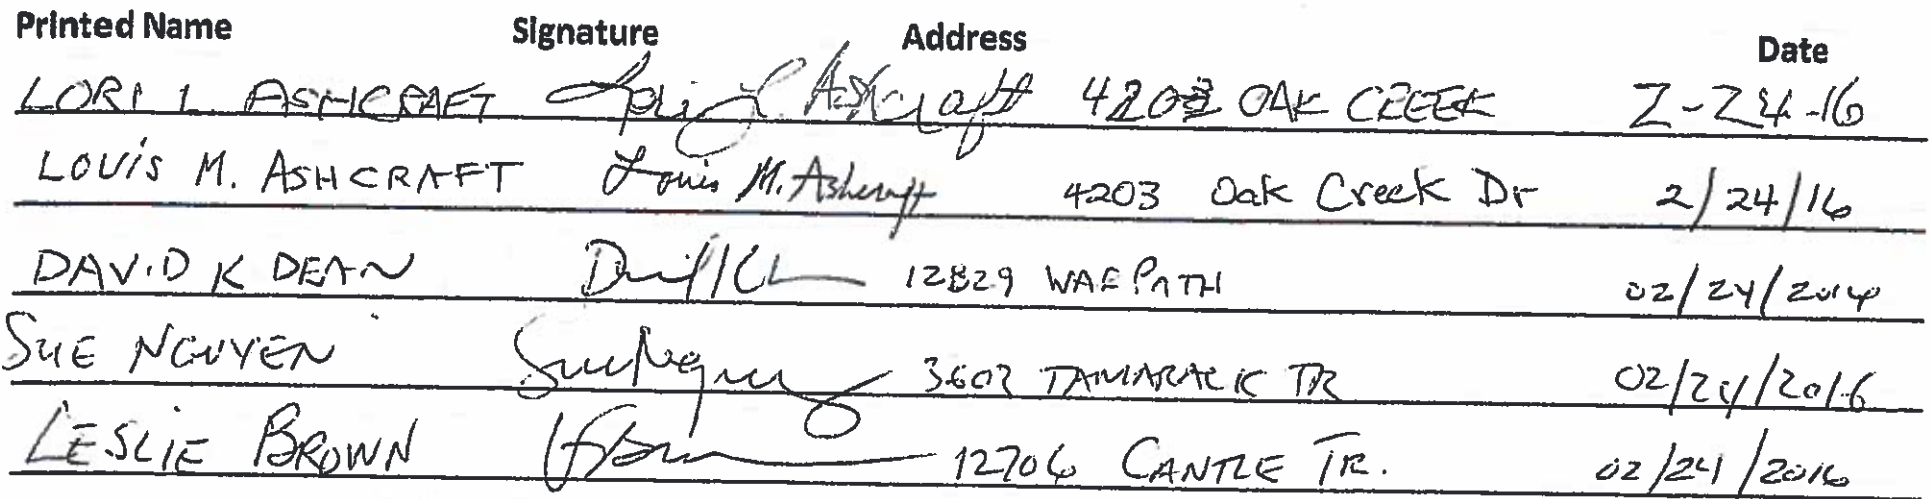 Printed Name Signature Address Date
LORI L ASHCRAFT Lori L. Ashcraft 4203 OAK CREEK 2-24-16
LOUIS M. ASHCRAFT Louis M. Ashcraft 4203 Oak Creek Dr 2/24/16
DAVID K DEAN 12829 WAEPATH 02/24/2016
SUE NGUYEN Sue Nguyen 3602 TAMARACK TR 02/24/2016
LESLIE BROWN 12706 CANTLE TR. 02/24/2016